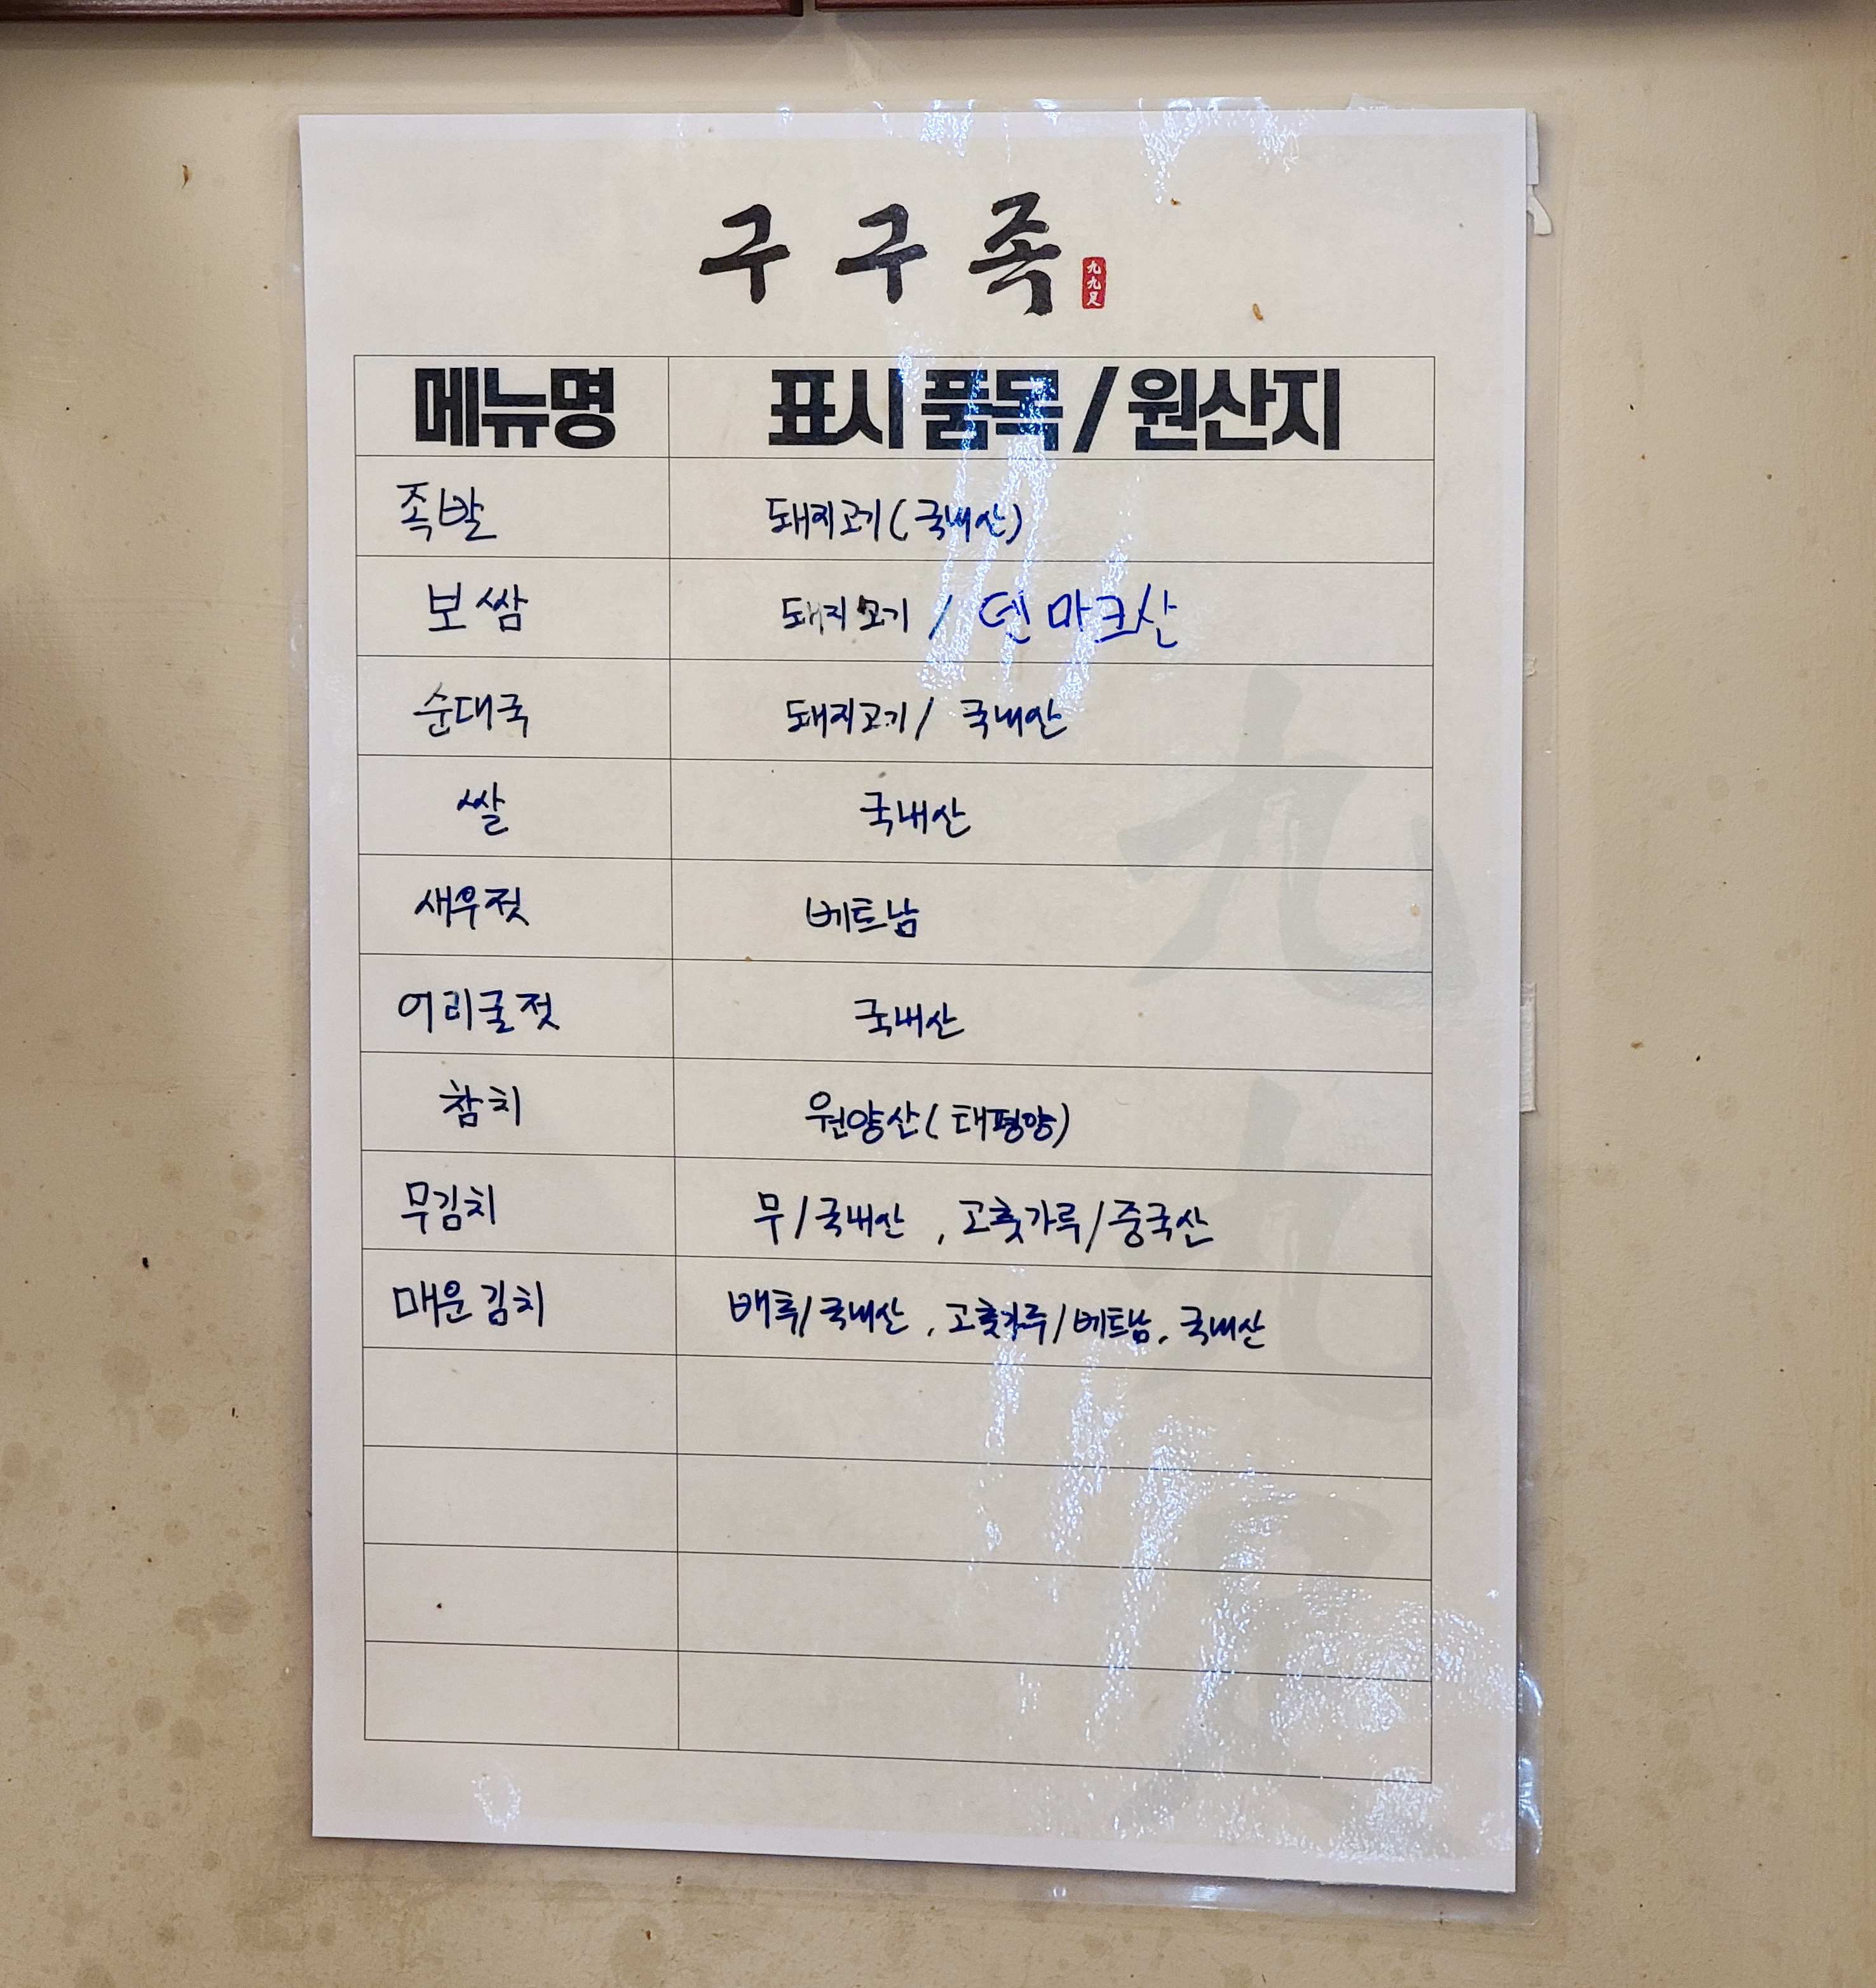 구구족
九九足
메뉴명 표시 품목 / 원산지
족발 돼지고기(국내산)
보쌈 돼지고기 / 덴마크산
순대국 돼지고기/ 국내산
쌀 국내산
새우젓 베트남
어리굴젓 국내산
참치 원양산(태평양)
무김치 무/국내산 , 고춧가루/중국산
매운김치 배추/국내산 , 고춧가루/베트남, 국내산
九九足